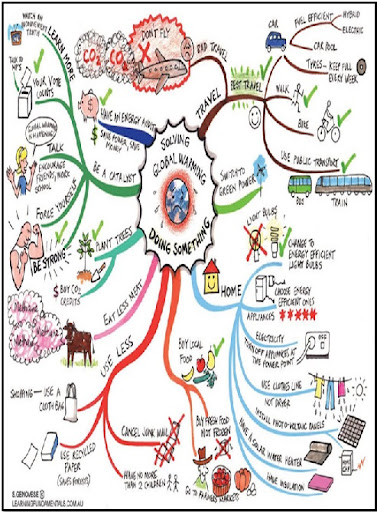 SOLVING
GLOBAL WARMING
DOING SOMETHING
LEARN MORE
WATCH AN
INCONVENIENT
TRUTH
TALK TO
MP'S
YOUR VOTE
COUNTS
TALK
GLOBAL WARMING
IS HAPPENING
ENCOURAGE
FRIENDS, WORK
SCHOOL
BE STRONG
BE A CATALYST
HAVE AN ENERGY AUDIT
SAVE POWER, SAVE
MONEY
PLANT TREES
BUY CO2
CREDITS
EAT LESS MEAT
USE LESS
SHOPPING
USE A
CLOTH BAG
USE RECYCLED
PAPER
(SAVES FORESTS)
CANCEL JUNK MAIL
HAVE NO MORE
THAN 2 CHILDREN
BUY LOCAL
FOOD
BUY FRESH FOOD
NOT FROZEN
GO TO FARMERS MARKETS
DON'T FLY
CO2
CO2
BAD TRAVEL
TRAVEL
BEST TRAVEL
CAR
FUEL EFFICIENT
HYBRID
ELECTRIC
CAR POOL
TYRES - KEEP FULL
EVERY WEEK
WALK
BIKE
USE PUBLIC TRANSPORT
BUS
TRAIN
SWITCH TO
GREEN POWER
HOME
LIGHT BULBS
CHANGE TO
ENERGY EFFICIENT
LIGHT BULBS
APPLIANCES
CHOOSE ENERGY
EFFICIENT ONES
ELECTRICITY
TURN OFF APPLIANCES AT
THE POWER POINT
USE CLOTHES LINE
NOT DRYER
INSTALL PHOTO-VOLTAIC PANELS
HAVE A SOLAR WATER HEATER
HAVE INSULATION
S.GENOVESE ©
LEARNINGFUNDAMENTALS.COM.AU